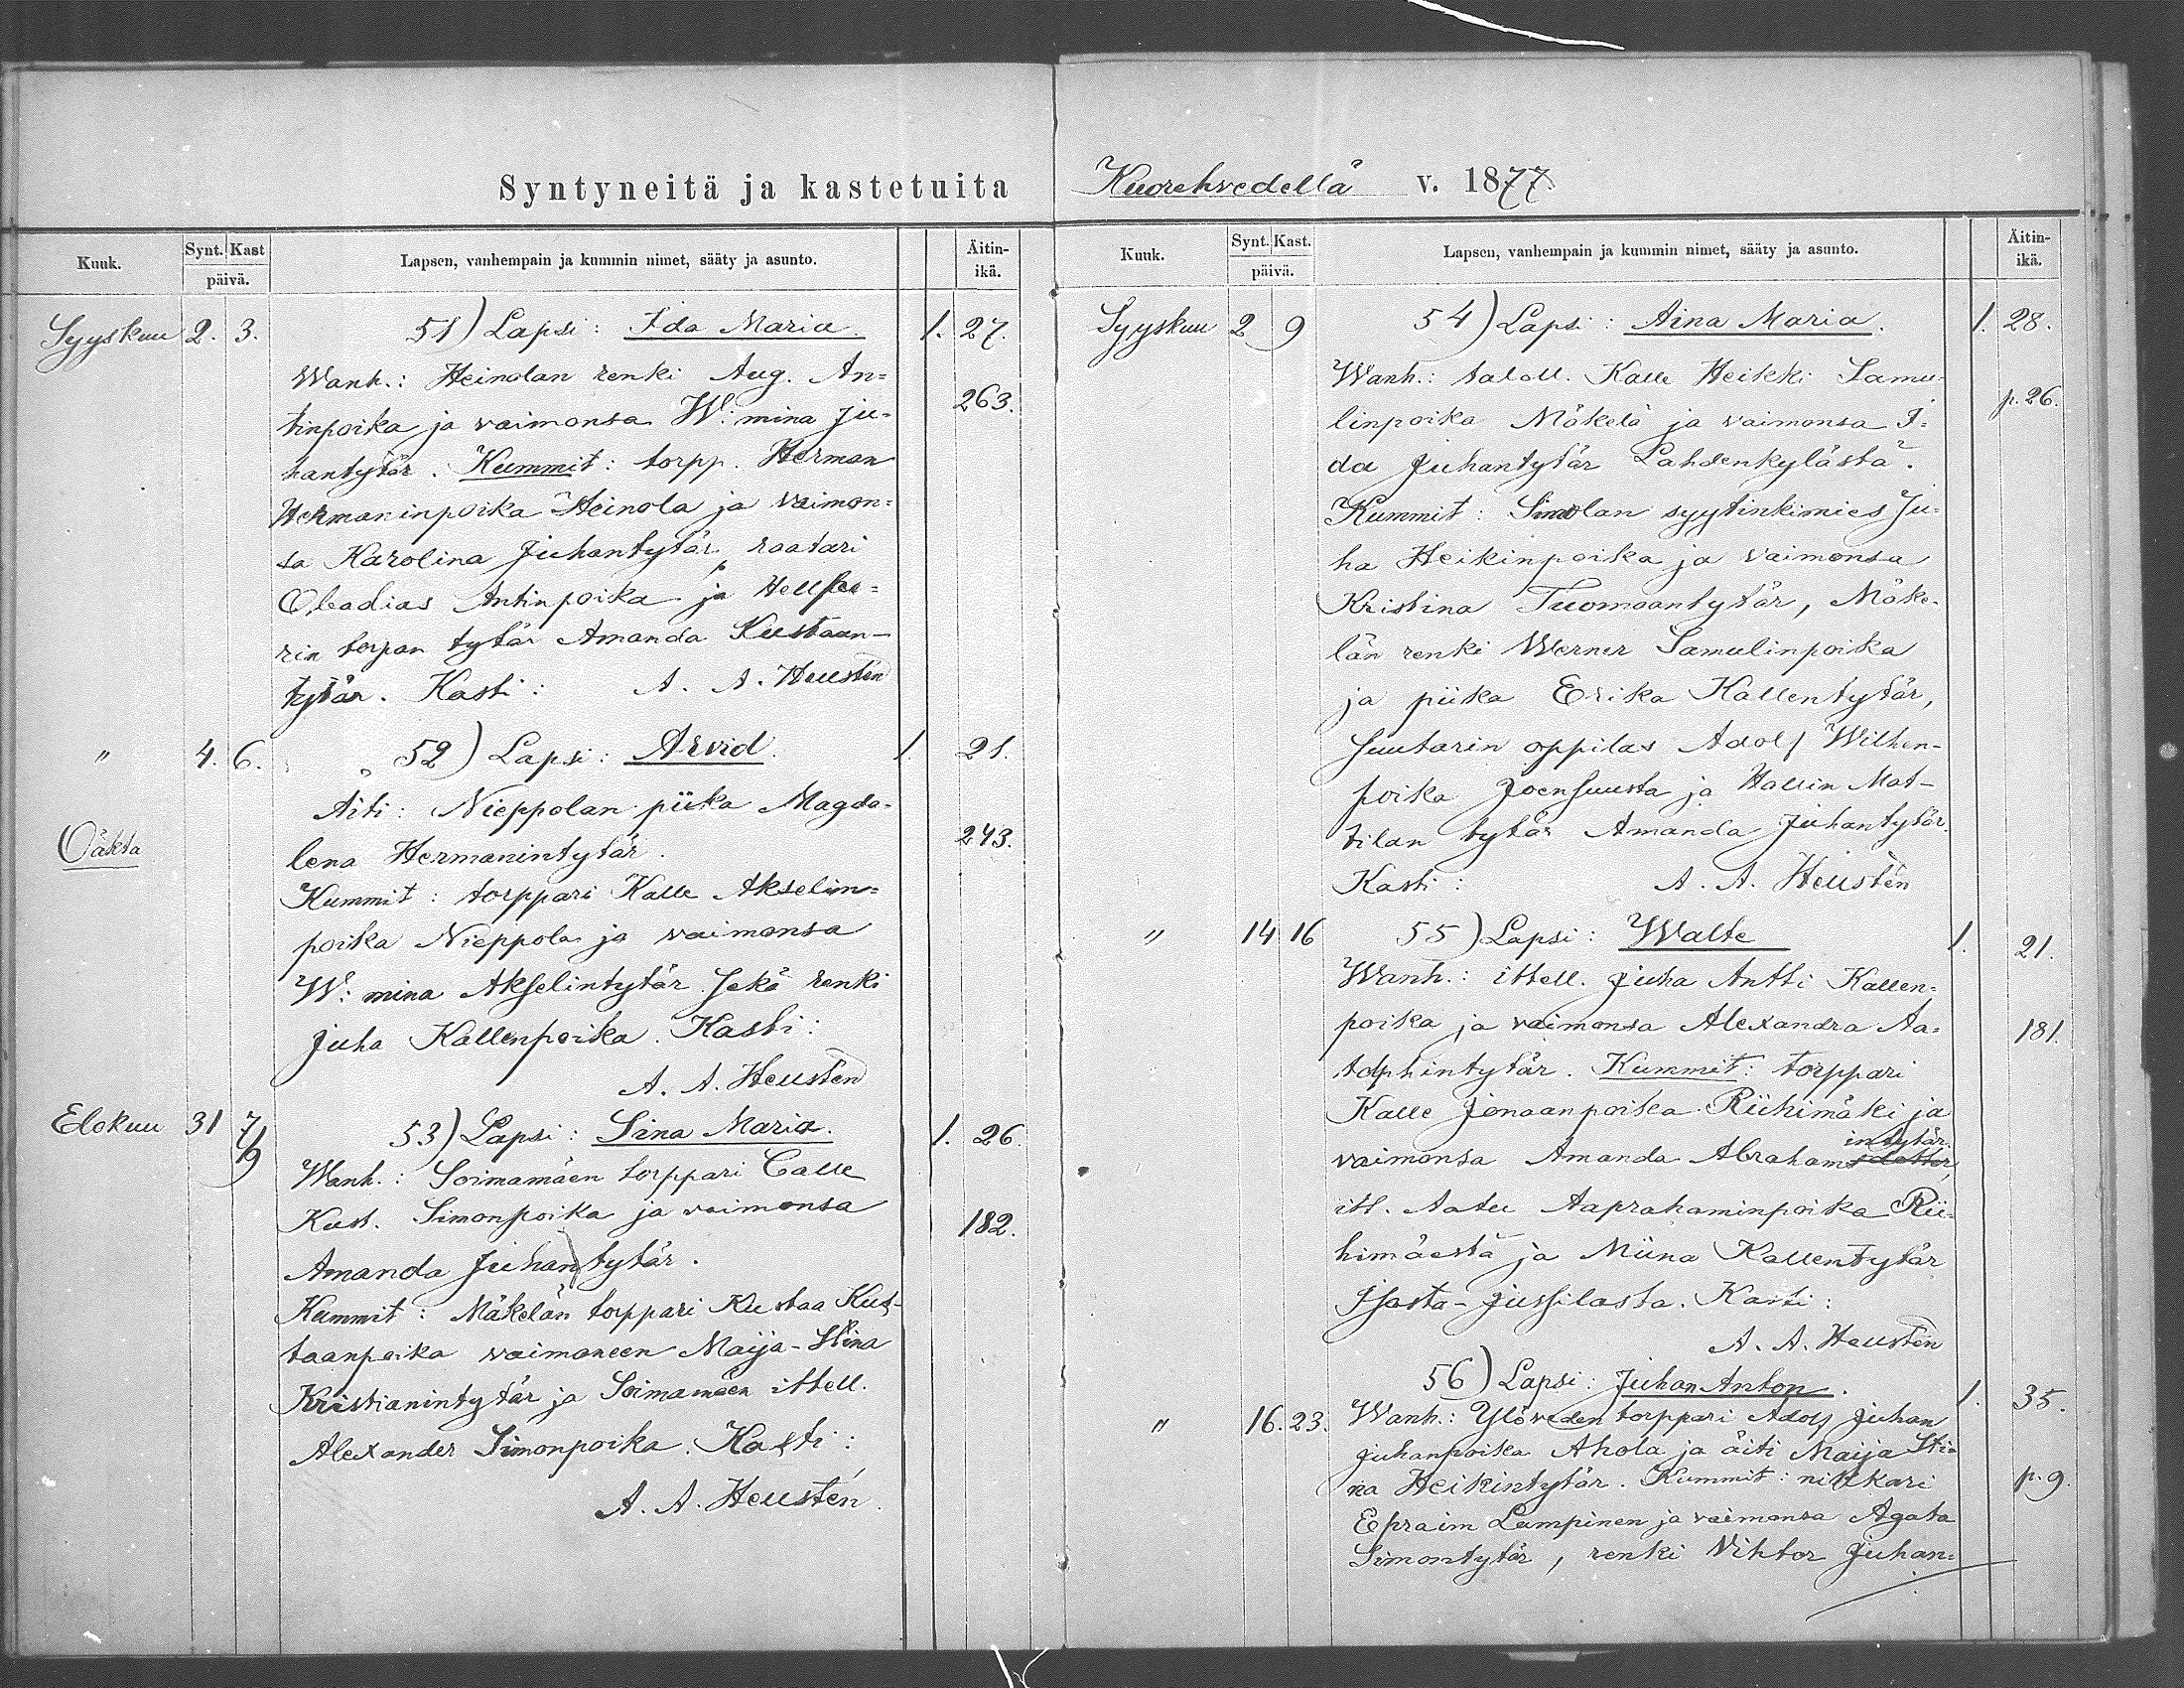 Syntyneitä ja kastetuita
Kuuk. Synt. Kast päivä. Lapsen, vanhempain ja kummin nimet, sääty ja asunto. Äitin-ikä.
Syyskuu 2. 3. 51) Lapsi: Ida Maria. 1. 27.
Wanh.: Heinolan renki Aug. An=
263.
tinpoika ja vaimonsa W:mina Ju=
hantytär. Kummit: torpp. Herman
Hermaninpoika Heinola ja vaimon=
sa Karolina Juhantytär, raatari
Obadias Antinpoika ja
rin torpan tytär Amanda Kustaan-
tytär. Kasti: A. A. Heustén
" 4. 6. 52) Lapsi: Arvid. 1. 21.
Äiti: Nieppolan piika Magda-
Oäkta 243.
lena Hermanintytär.
Kummit: torppari Kalle Akselin=
poika Nieppola ja vaimonsa
W:mina Akselintytär sekä renki
Juha Kallenpoika. Kasti:
A. A. Heustén
Elokuu 31 7/9 53) Lapsi: Sina Maria. 1. 26.
Wanh.: Soimamäen torppari Calle
Kust. Simonpoika ja vaimonsa
182.
Amanda Juhantytär.
Kummit: Mäkelän torppari Kustaa Kus-
taanpoika vaimoneen Maija-Stina
Kristianintytär ja Soimamäen ittell.
Alexander Simonpoika. Kasti:
A. A. Heustén.
Kuorehvedellä v. 1877.
Kuuk. Synt. Kast. päivä. Lapsen, vanhempain ja kummin nimet, sääty ja asunto. Äitin-ikä.
Syyskuu 2 9 54) Lapsi: Aina Maria. 1. 28.
Wanh.: taloll. Kalle Heikki Samu-
p. 26.
linpoika Mäkelä ja vaimonsa I=
da Juhantytär Lahdenkylästä.
Kummit: Simolan syytinkimies Ju=
ha Heikinpoika ja vaimonsa
Kristina Tuomaantytär, Mäke-
län renki Werner Samulinpoika
ja piika Erika Kallentytär,
suutarin oppilas Adolf Wilhen-
poika Joensuusta ja Hallin Mat-
tilan tytär Amanda Juhantytär.
Kasti: A. A. Heustén
" 14 16 55) Lapsi: Walte 1. 21.
Wanh.: ittell. Juha Antti Kallen=
poika ja vaimonsa Alexandra Aa=
181.
tolphintytär. Kummit: torppari
Kalle Jonaanpoika Riihimäki ja
intytär.
vaimonsa Amanda Abrahamsdotter,
itl. Aatu Aaprahaminpoika Rii=
himäestä ja Miina Kallentytär
Isosta-Jussilasta. Kasti:
A. A. Heustén
56) Lapsi: Juhan Anton. 1. 35.
" 16. 23. Wanh.: Ylöveden torppari Adolf Juhan
Juhanpoika Ahola ja äiti Maija Sti=
na Heikintytär. Kummit: nikkari
p. 9
Epraim Lampinen ja vaimonsa Agata
Simontytär, renki Vihtor Juhan=